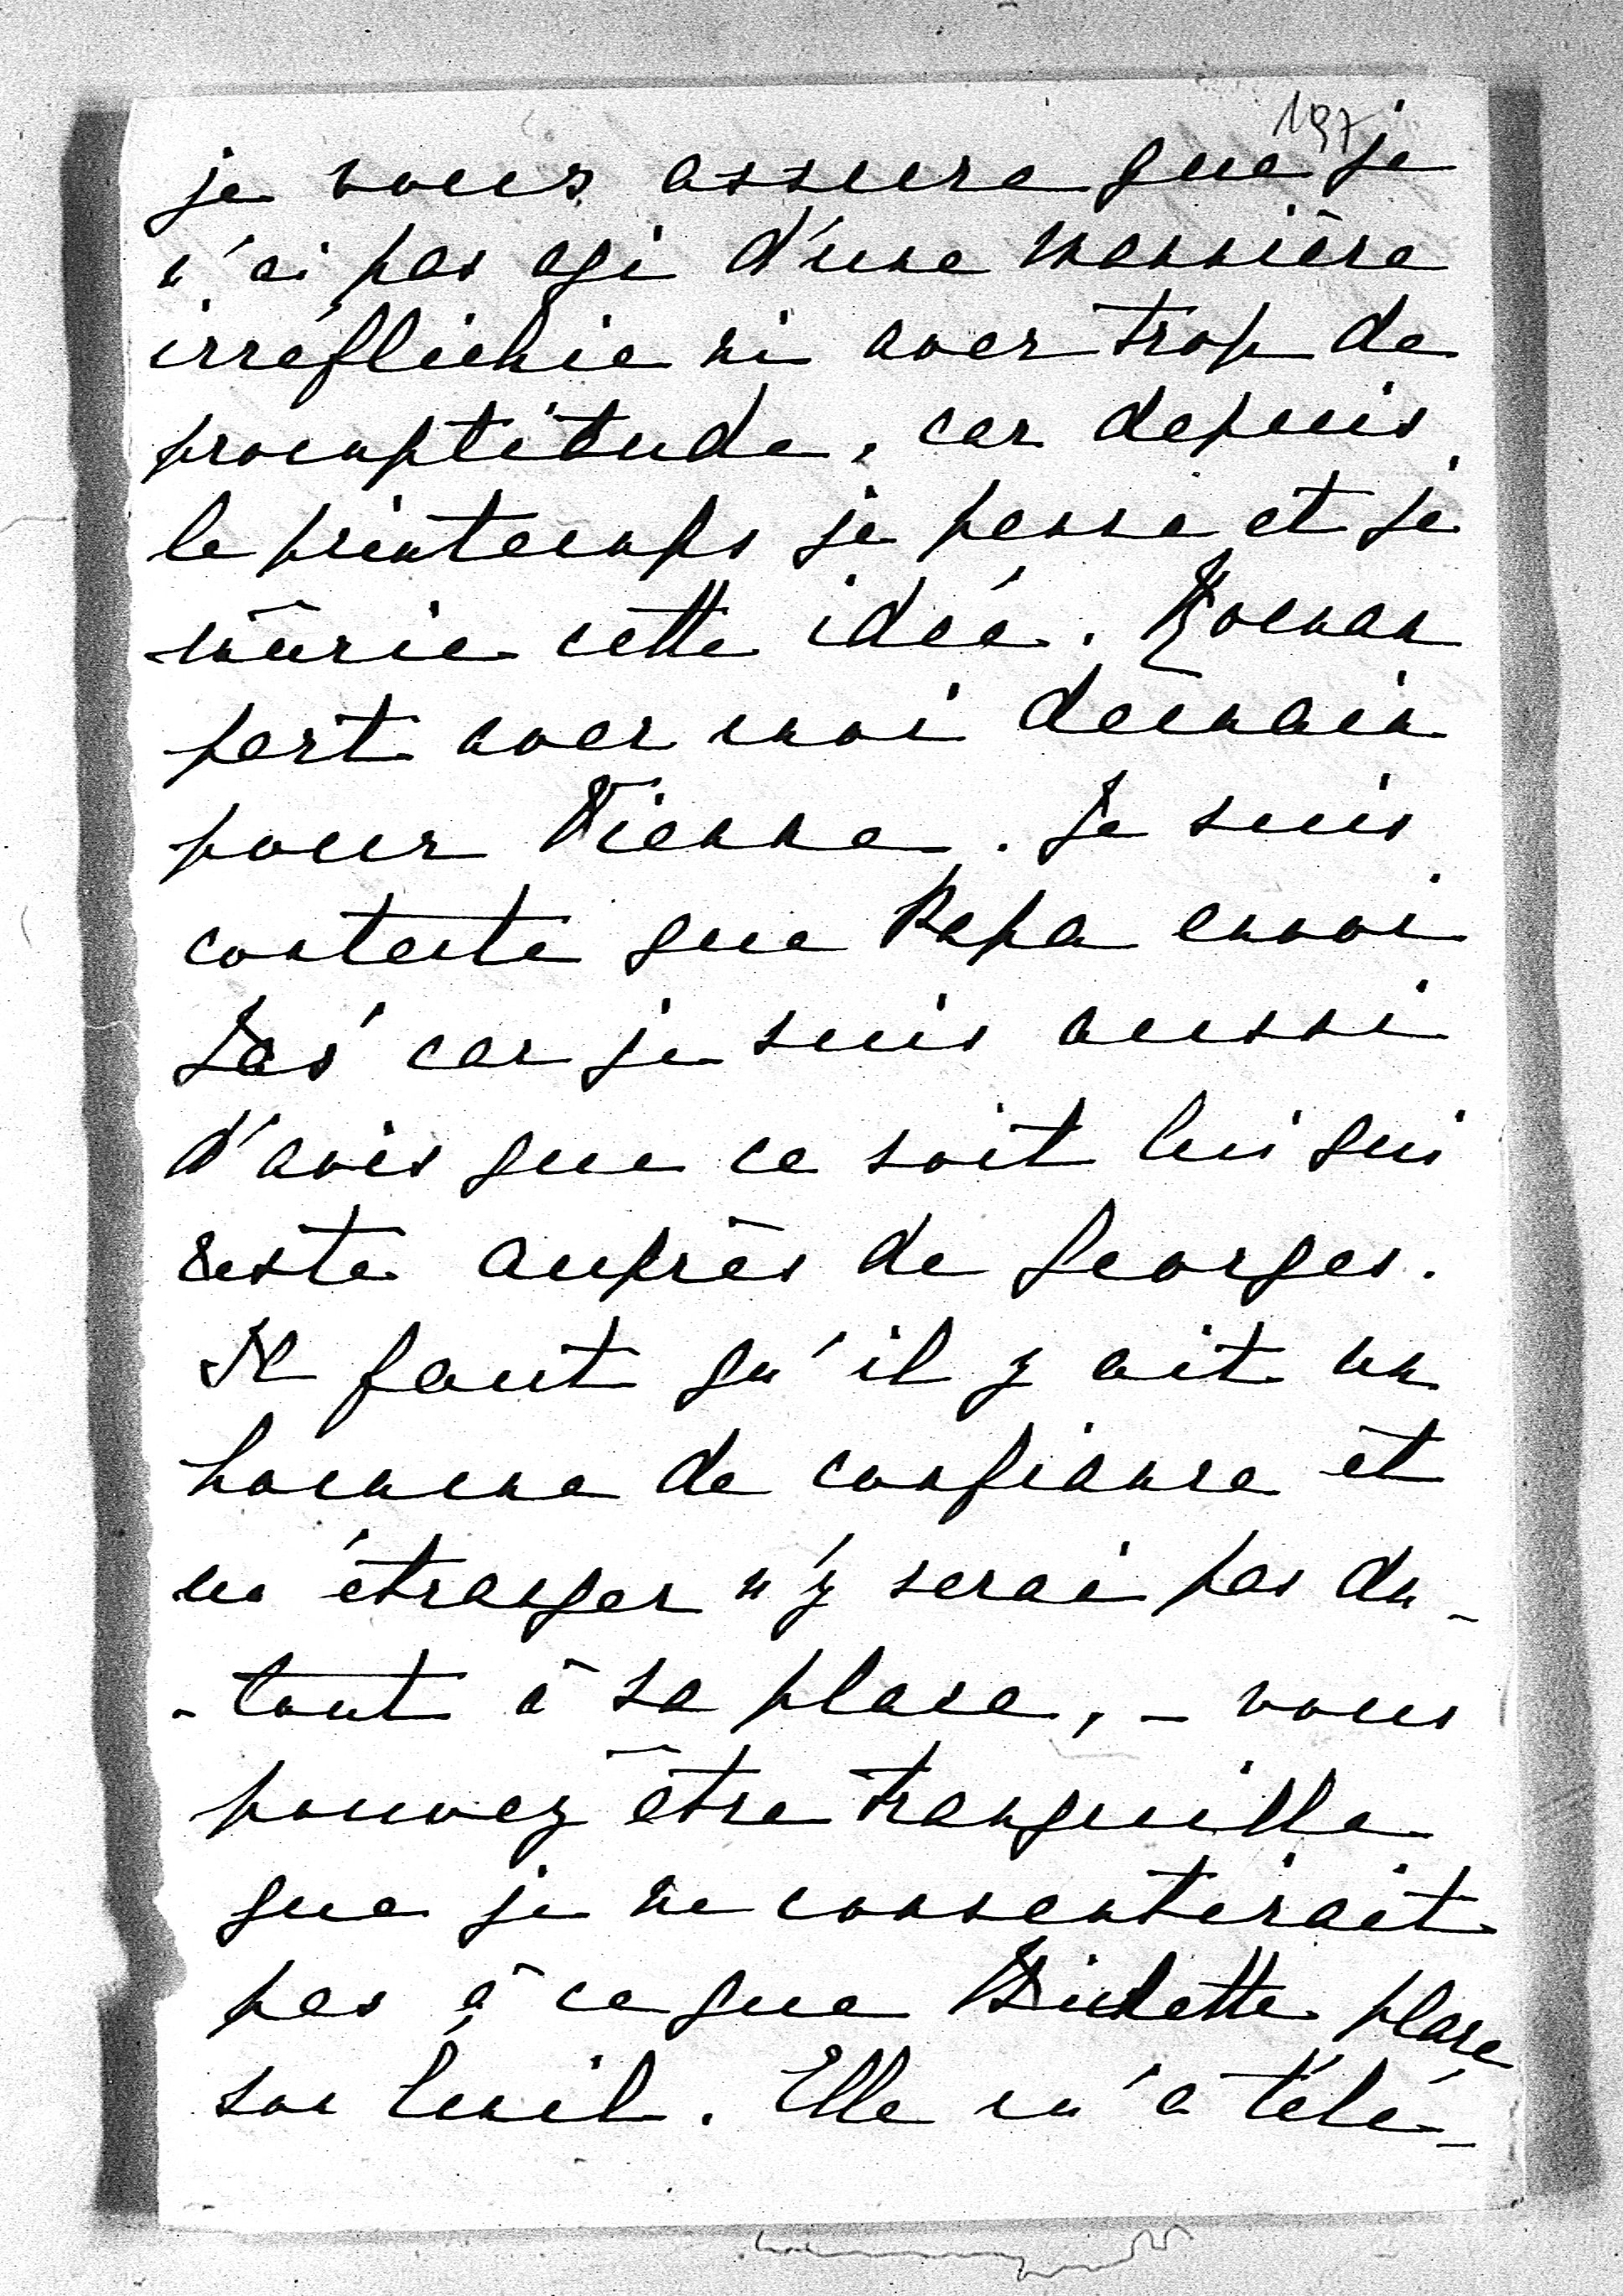 197
je vous assure que je
n'ai pas agi d'une mannière
irréflichie ni avec trop de
promptitude, car depuis
le printemps je pense et je
mûrie cette idée. Roman
part avec moi demain
pour Vienne. Je suis
contente que Papa envoi
car je suis aussi
d'avis que ce soit lui qui
reste auprès de Georges.
Il faut qu'il y ait un
homme de confiance et
un étranger n'y serai pas du-
-tout à sa place, - vous
pouvez être tranquille
que je ne consentirait
pas à ce que place
son Emil. Elle m'a télé-